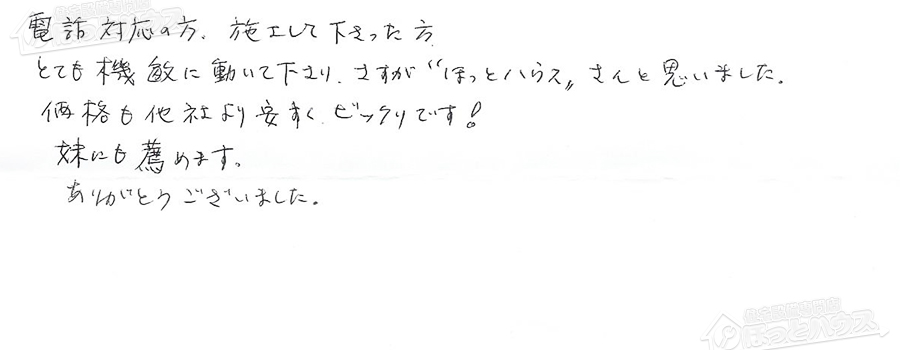 電話対応の方、施工して下さった方
とても機敏に動いて下さり、さすが“ほっとハウス”さんと思いました。
価格も他社より安すく、ビックリです!
妹にも薦めます。
ありがとうございました。
住宅設備専門店
ほっとハウス
住宅設備専門店
ほっとハウス